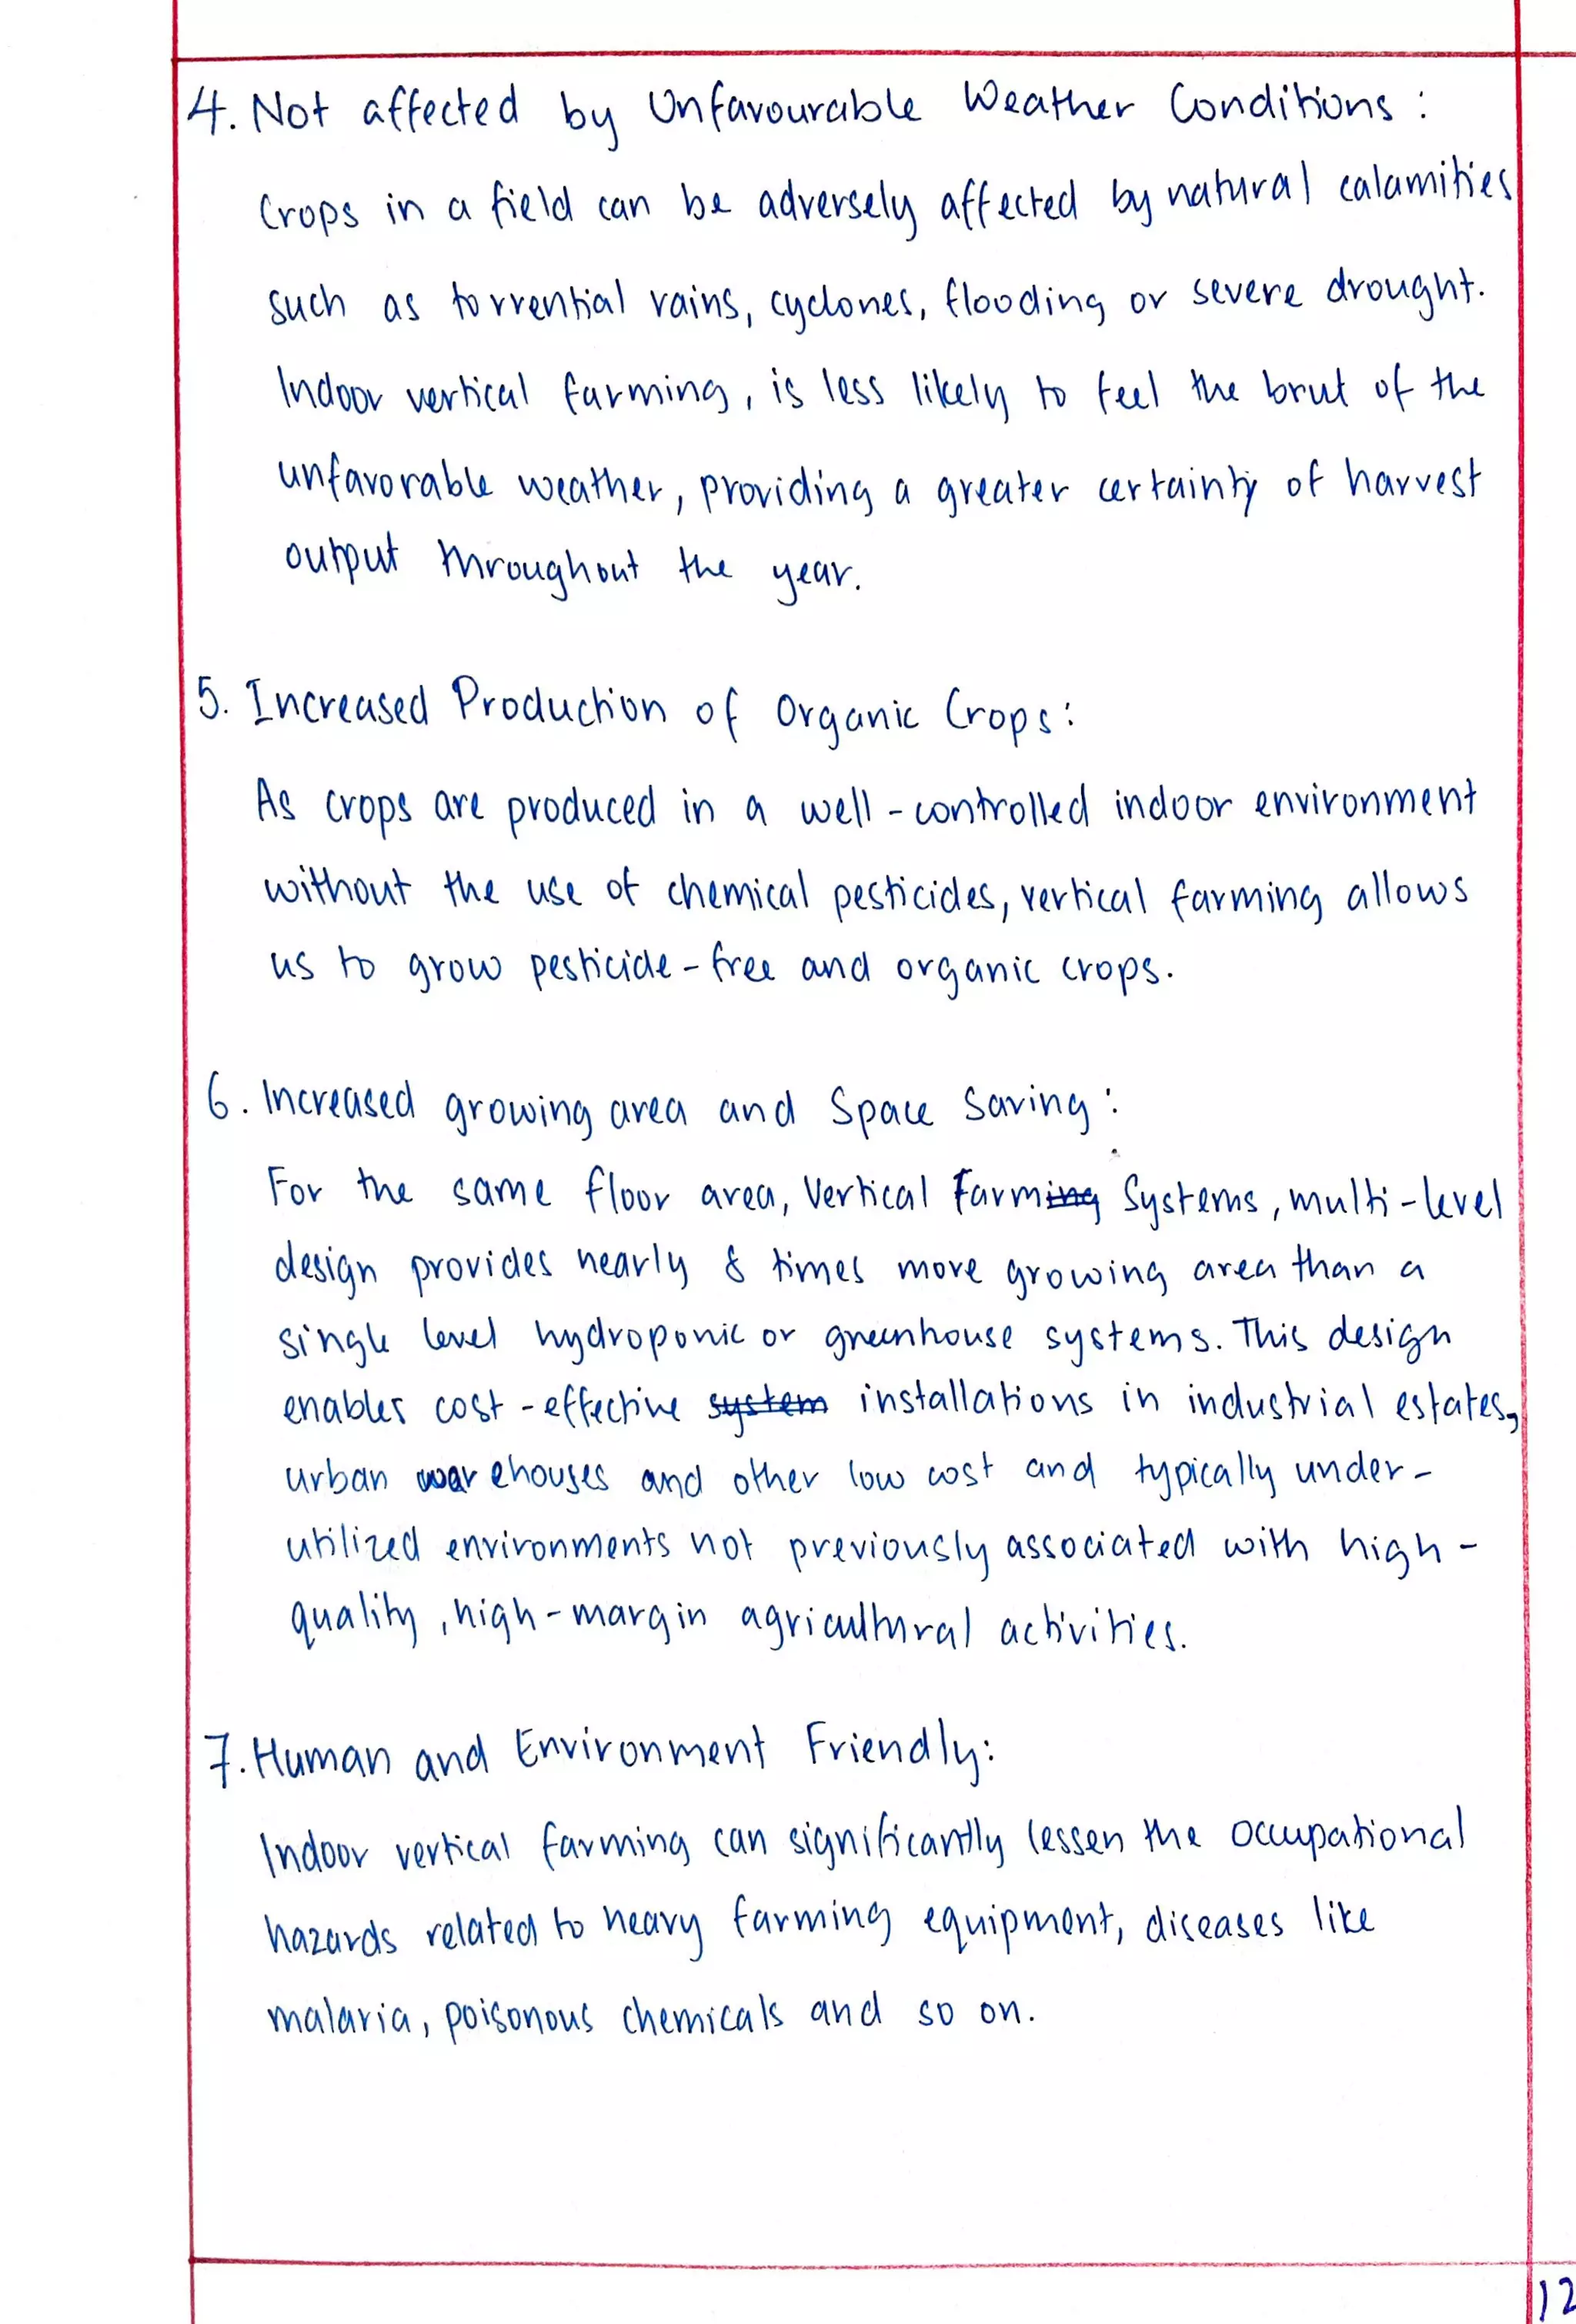 4. Not affected by Unfavourable Weather Conditions :
Crops in a field can be adversely affected by natural calamities
such as torrential rains, cyclones, flooding or severe drought.
Indoor vertical farming, is less likely to feel the brut of the
unfavorable weather, providing a greater certainty of harvest
output throughout the year.
5. Increased Production of Organic Crops :
As crops are produced in a well-controlled indoor environment
without the use of chemical pesticides, vertical farming allows
us to grow pesticide-free and organic crops.
6. Increased growing area and Space Saving :
For the same floor area, Vertical Farming Systems, multi-level
design provides nearly 8 times more growing area than a
single level hydroponic or greenhouse systems. This design
enables cost-effective system installations in industrial estates,
urban warehouses and other low cost and typically under-
utilized environments not previously associated with high-
quality, high-margin agricultural activities.
7. Human and Environment Friendly:
Indoor vertical farming can significantly lessen the occupational
hazards related to heavy farming equipment, diseases like
malaria, poisonous chemicals and so on.
12